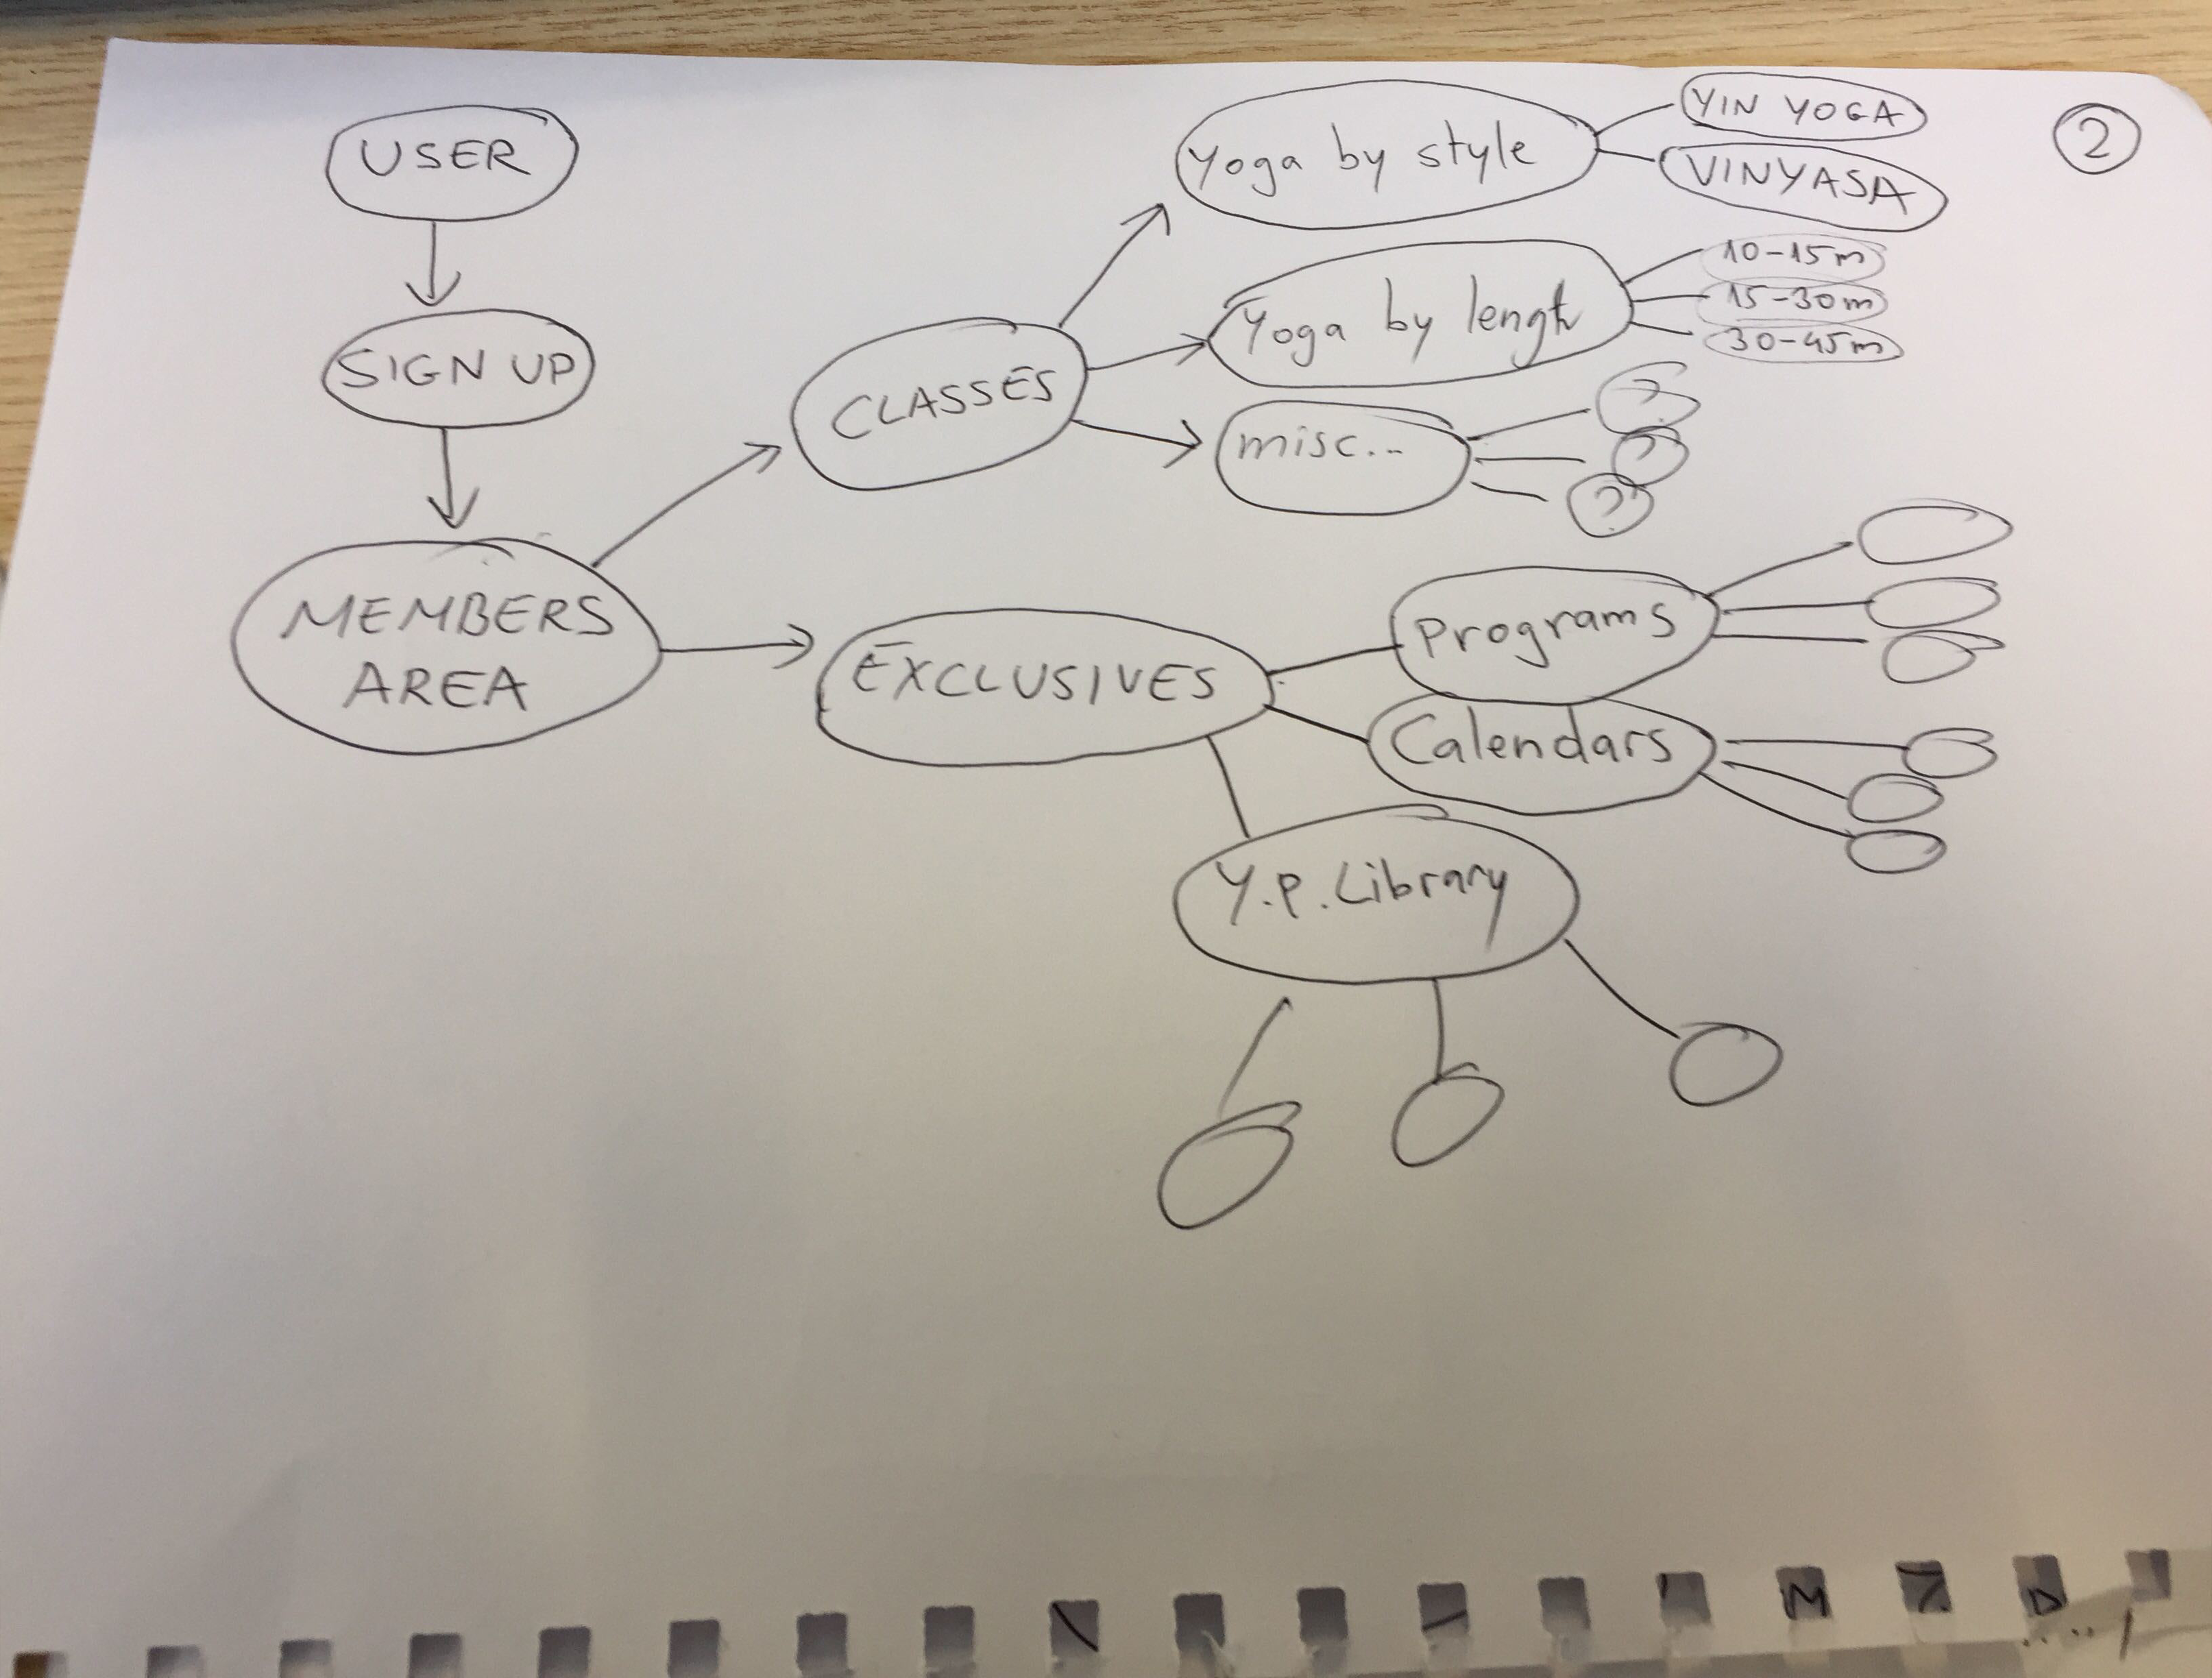 USER
SIGN UP
MEMBERS
AREA
CLASSES
Yoga by style
YIN YOGA
VINYASA
2
Yoga by lengh
10-15m
15-30m
30-45m
misc...
?
?
?
EXCLUSIVES
Programs
Calendars
Y.P. Library